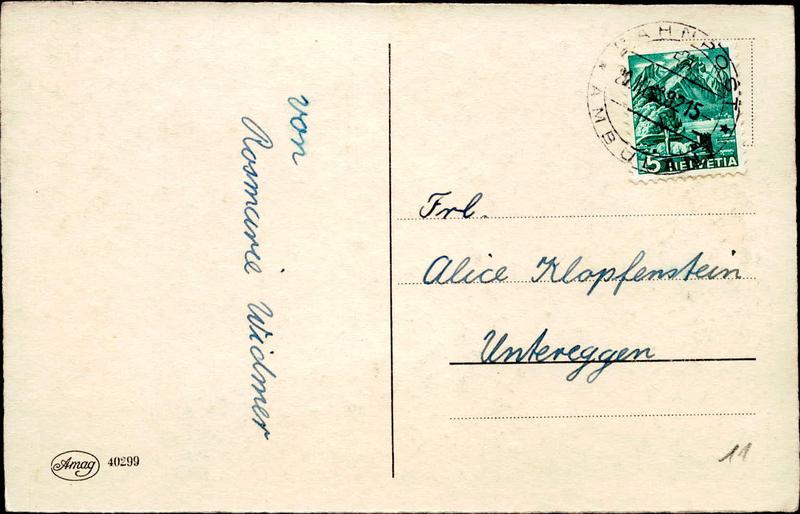 von
Rosmarie Widmer
BAHNPOST
AMBULANT
5 HELVETIA
Frl.
Alice Klopfenstein
Untereggen
Amag 40299
11